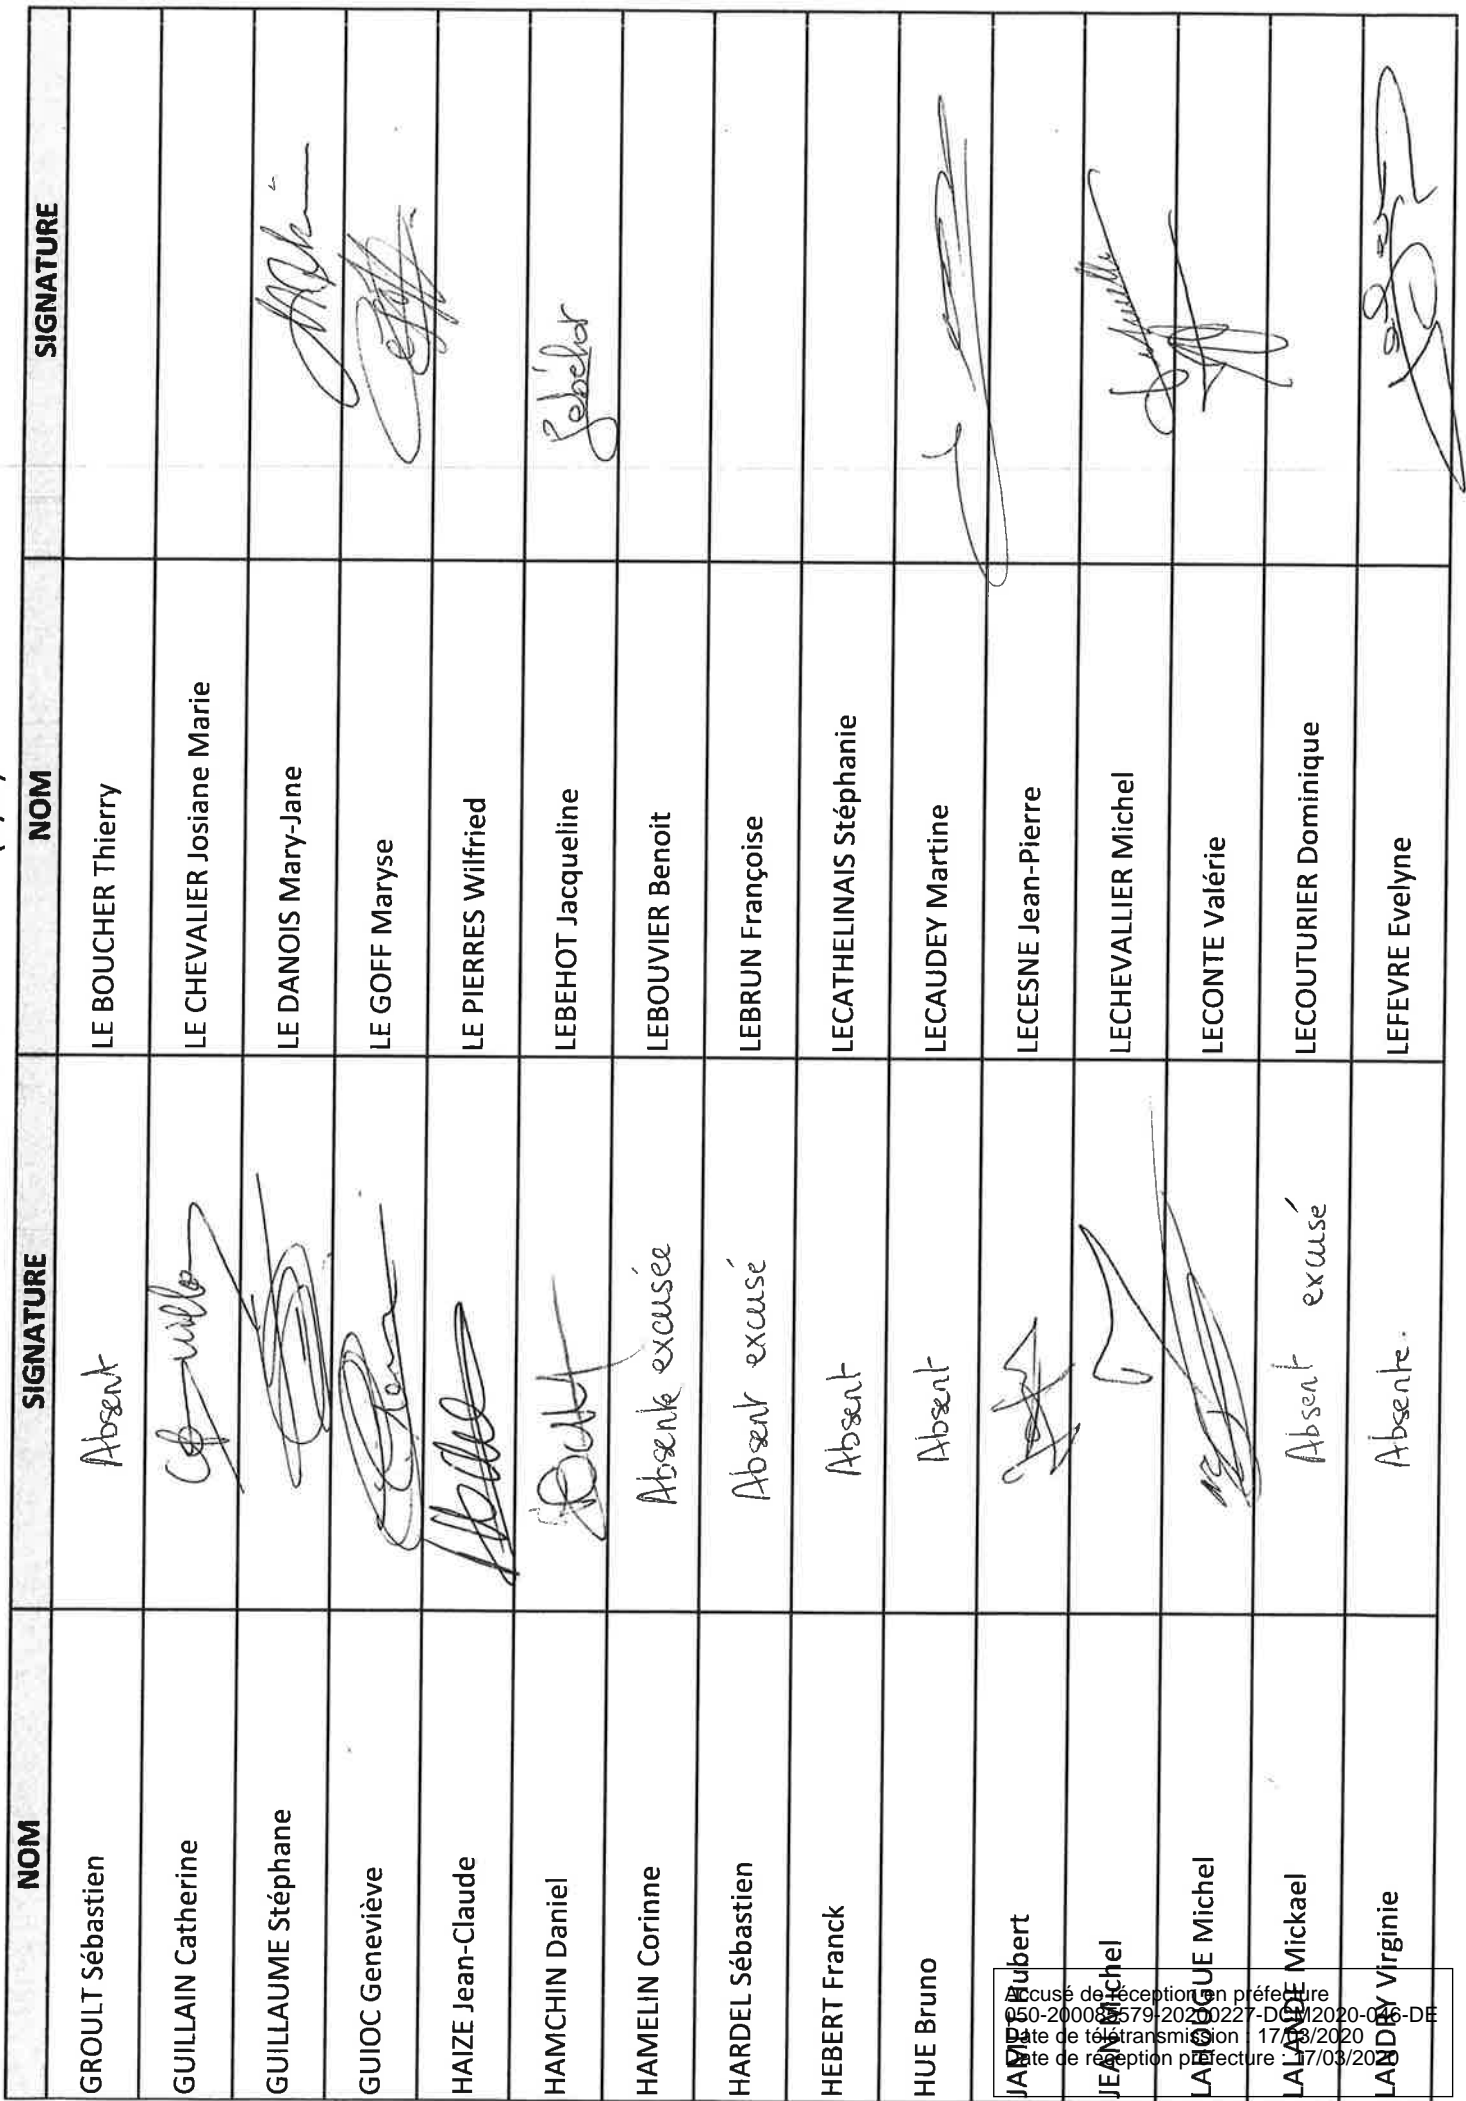 NOM SIGNATURE NOM SIGNATURE
GROULT Sébastien Absent LE BOUCHER Thierry
GUILLAIN Catherine LE CHEVALIER Josiane Marie
GUILLAUME Stéphane LE DANOIS Mary-Jane
GUIOC Geneviève LE GOFF Maryse
HAIZE Jean-Claude LE PIERRES Wilfried
HAMCHIN Daniel LEBEHOT Jacqueline
HAMELIN Corinne Absente excusée LEBOUVIER Benoit
HARDEL Sébastien Absent excusé LEBRUN Françoise
HEBERT Franck Absent LECATHELINAIS Stéphanie
HUE Bruno Absent LECAUDEY Martine
Hubert LECESNE Jean-Pierre
JEAN Michel LECHEVALLIER Michel
Michel LECONTE Valérie
LALANDE Mickael Absent excusé LECOUTURIER Dominique
LANDRY Virginie Absente. LEFEVRE Evelyne
Accusé de réception en préfecture
050-200085579-20200227-DCM2020-046-DE
Date de télétransmission : 17/03/2020
Date de réception préfecture : 17/03/2020